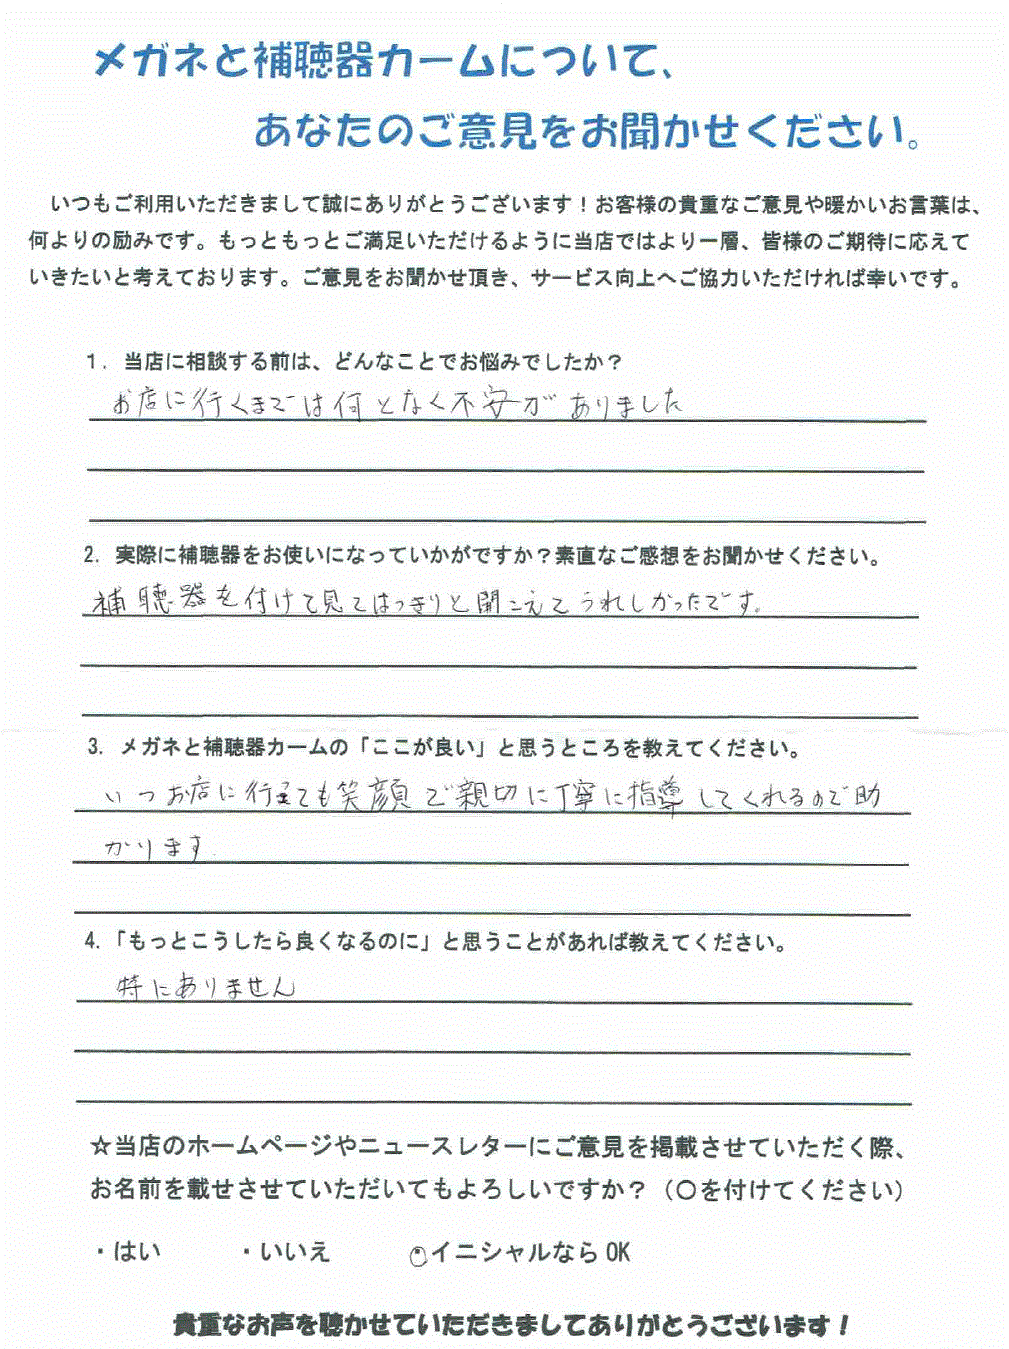 メガネと補聴器カームについて、
あなたのご意見をお聞かせください。
いつもご利用いただきまして誠にありがとうございます！お客様の貴重なご意見や暖かいお言葉は、
何よりの励みです。もっともっとご満足いただけるように当店ではより一層、皆様のご期待に応えて
いきたいと考えております。ご意見をお聞かせ頂き、サービス向上へご協力いただければ幸いです。
1. 当店に相談する前は、どんなことでお悩みでしたか？
お店に行くまでは何となく不安がありました
2. 実際に補聴器をお使いになっていかがですか？素直なご感想をお聞かせください。
補聴器を付けて見てはっきりと聞こえてうれしかったです。
3. メガネと補聴器カームの「ここが良い」と思うところを教えてください。
いつお店に行っても笑顔で親切に丁寧に指導してくれるので助
かります.
4.「もっとこうしたら良くなるのに」と思うことがあれば教えてください。
特にありません
☆当店のホームページやニュースレターにご意見を掲載させていただく際、
お名前を載せさせていただいてもよろしいですか？（○を付けてください）
・はい ・いいえ ・イニシャルならOK
貴重なお声を聴かせていただきましてありがとうございます！